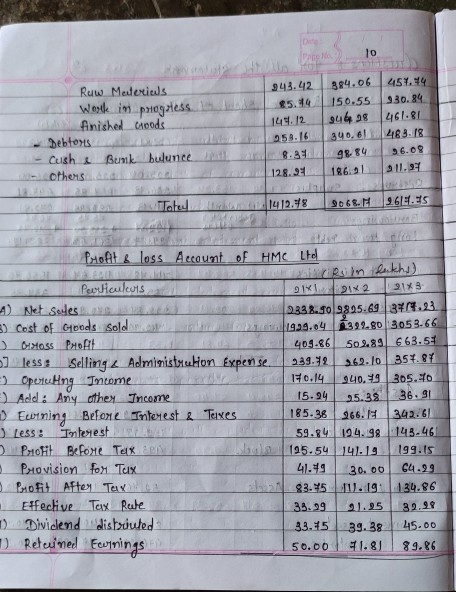 Date
Page No. 10
Raw Materials 243.42 384.06 457.74
Work in progress 85.74 150.55 230.84
Finished Goods 147.12 246.28 461.81
- Debtors 253.16 340.61 483.18
- Cash & Bank balance 8.37 98.84 26.08
- Others 128.27 186.21 211.27
Total 1412.78 2068.17 2617.75
Profit & loss Account of HMC Ltd
(Rs in lakhs)
Particulars 21X1 21X2 21X3
A) Net Sales 2338.90 2825.69 3717.23
) Cost of Goods Sold 1929.04 2322.80 3053.66
) Gross Profit 409.86 502.89 663.57
] less: Selling & Administration Expense 239.72 262.10 357.87
) Operating Income 170.14 240.79 305.70
) Add: Any other Income 15.24 25.38 36.91
) Earning Before Interest & Taxes 185.38 266.17 342.61
) Less: Interest 59.84 124.98 143.46
) Profit Before Tax 125.54 141.19 199.15
) Provision for Tax 41.79 30.00 64.29
) Profit After Tax 83.75 111.19 134.86
) Effective Tax Rate 33.29 21.25 32.28
) Dividend distributed 33.75 39.38 45.00
) Retained Earnings 50.00 71.81 89.86